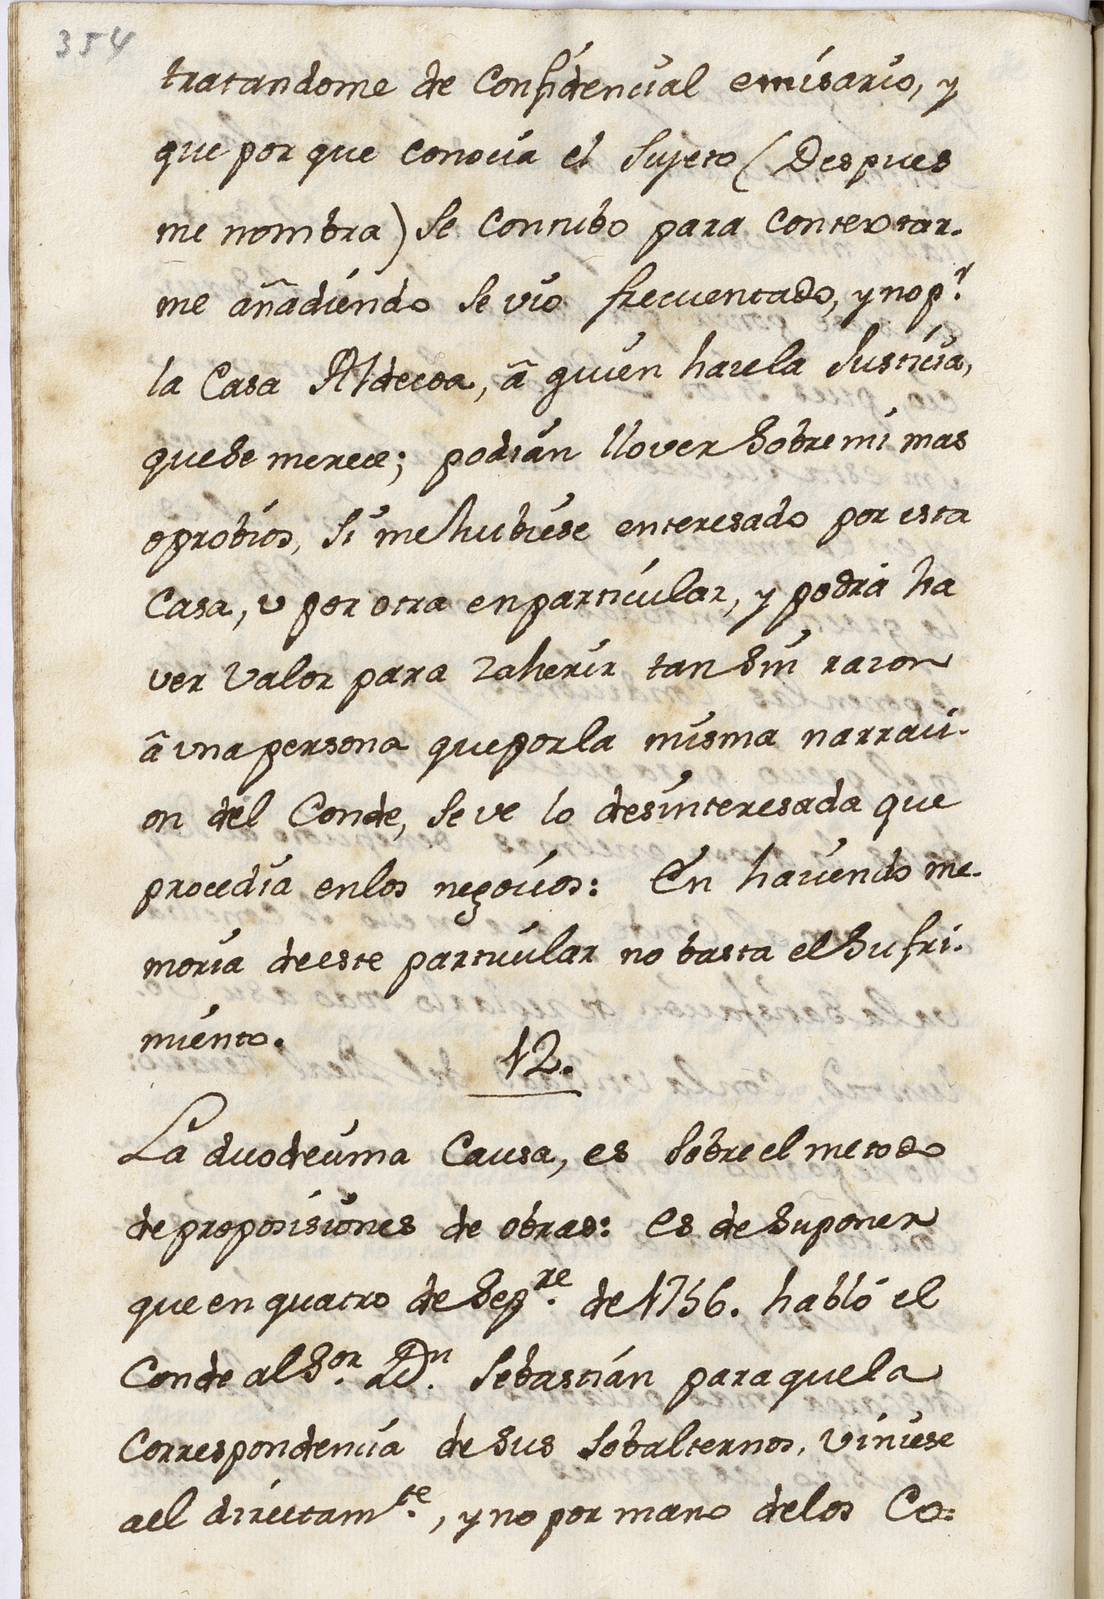 354
tratandome de Confidencial emisario, y
que por que conocia el Sujeto (Despues
me nombra) Se contubo para contextar.
me añadiendo Se vio frecuentado, y no p.r
la Casa Aldecoa, â quien harela Justicia,
que Se merece; podian llover Sobre mi mas
oprobios, Si me hubiese enteresado por esta
Casa, v por otra en particular, y podrá ha
ver Valor para zaherir tan Sin razon
â vna persona que por la misma narraci-
on del Conde, Se ve lo desinteresada que
procedia en los negocios: En haciendo me-
moria de este particular no basta el Sufri-
miento.
12.
La duodecima Causa, es Sobre el metodo
de proposisiones de obras: es de Suponer
que en quatro de Sep.re de 1756. habló el
Conde al S.or D.n Sebastián para que la
Correspondencia de Sus Sobalternos, viniese
a el directam.te, y no por mano de los Co-